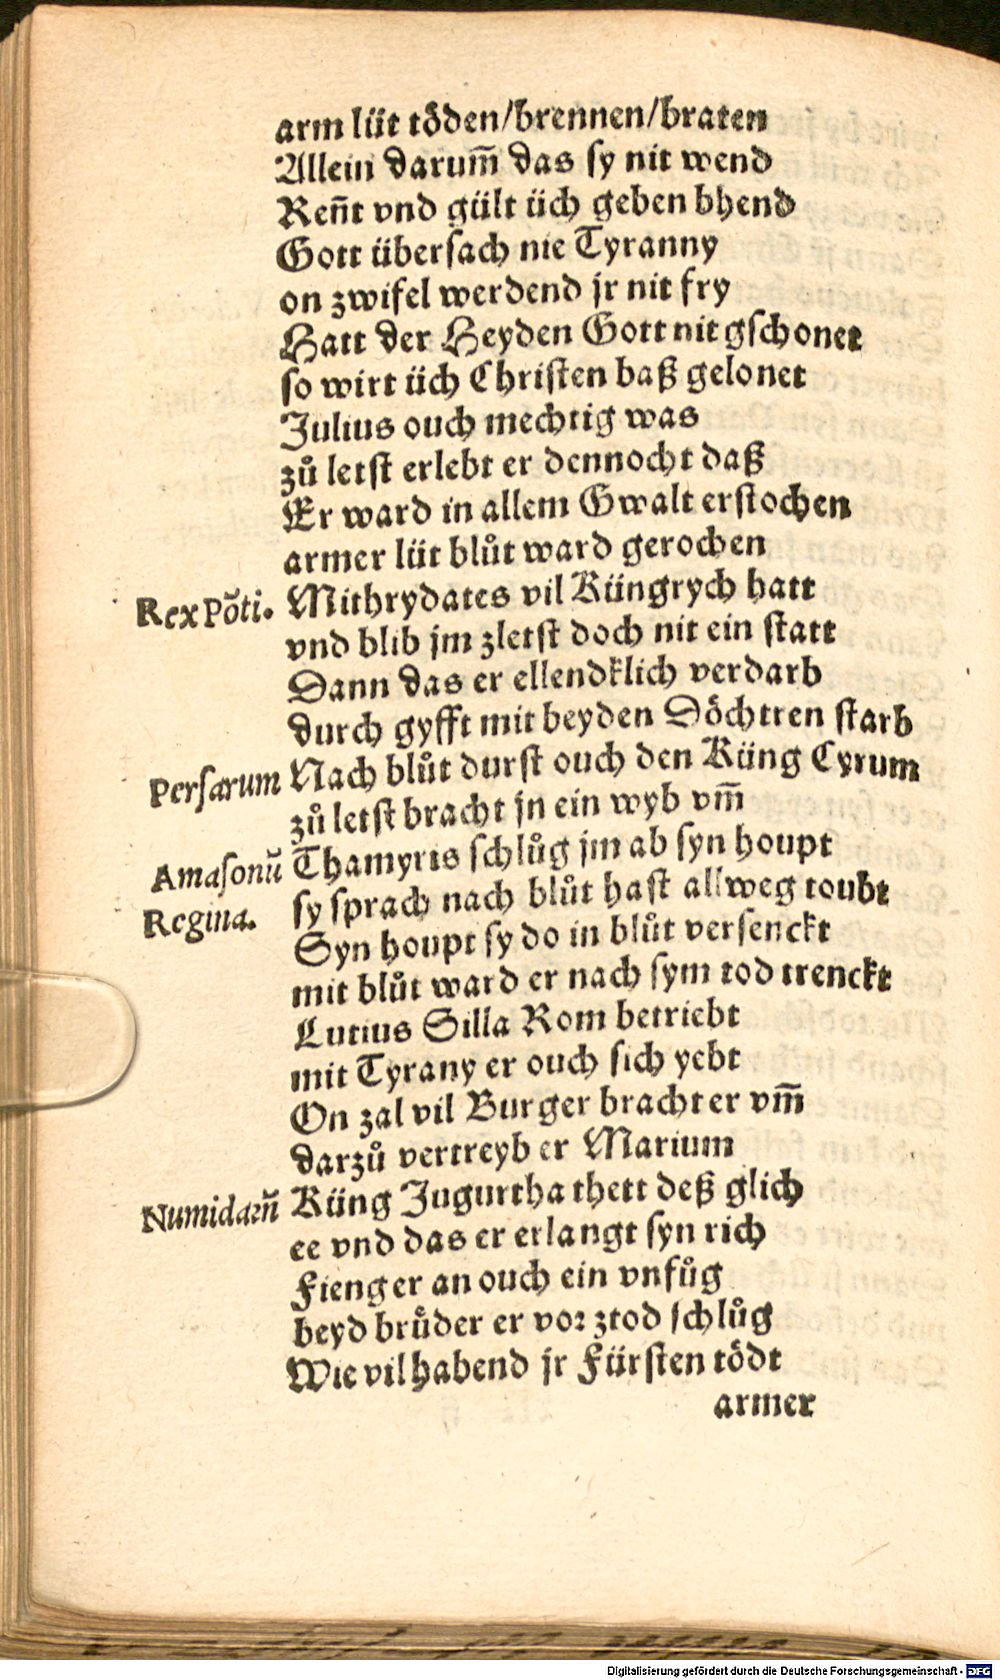 arm lüt töden/brennen/braten
Allein darum̄ das sy nit wend
Ren̄t vnd gült üch geben bhend
Gott übersach nie Tyranny
on zwifel werdend jr nit fry
Hatt der Heyden Gott nit gschonet
so wirt üch Christen baß gelonet
Julius ouch mechtig was
zů letst erlebt er dennocht daß
Er ward in allem Gwalt erstochen
armer lüt blůt ward gerochen
Rex Pōti. Mithrydates vil Küngrych hatt
vnd blib jm zletst doch nit ein statt
Dann das er ellendklich verdarb
durch gyfft mit beyden Döchtren starb
Persarum Nach blůt durst ouch den Küng Cyrum
zů letst bracht jn ein wyb vm̄
Amasonū Thamyris schlůg jm ab syn houpt
Regina. sy sprach nach blůt hast allweg toubt
Syn houpt sy do in blůt versenckt
mit blůt ward er nach sym tod trenckt
Lutius Silla Rom betriebt
mit Tyrany er ouch sich yebt
On zal vil Burger bracht er vm̄
darzů vertreyb er Marium
Numidarū Küng Jugurtha thett deß glich
ee vnd das er erlangt syn rich
Fieng er an ouch ein vnfůg
beyd brůder er vor ztod schlůg
Wie vil habend jr Fürsten tödt
armer
Digitalisierung gefördert durch die Deutsche Forschungsgemeinschaft - DFG